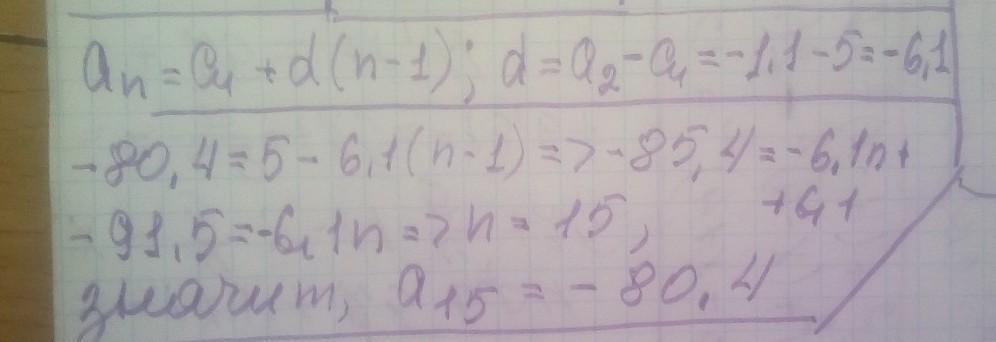 aₙ = a₁ + d(n-1); d = a₂ - a₁ = -1,1 - 5 = -6,1
-80,4 = 5 - 6,1(n-1) => -85,4 = -6,1n +
+6,1
-91,5 = -6,1n => n = 15,
значит, a₁₅ = -80,4